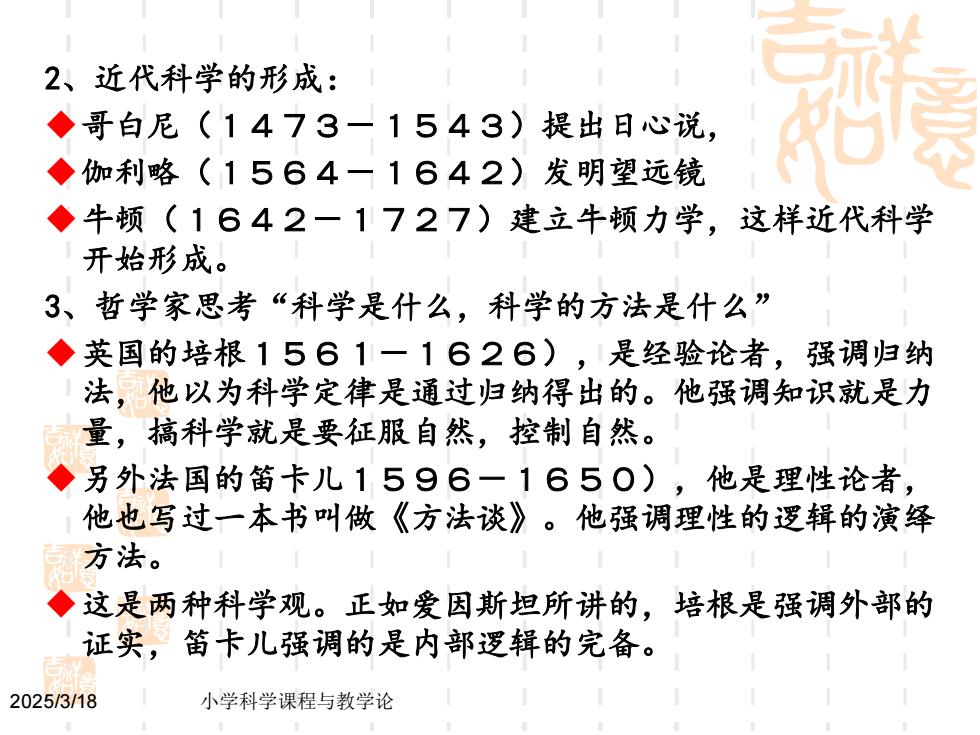 吉祥
如意
2、近代科学的形成：
◆哥白尼（１４７３－１５４３）提出日心说，
◆伽利略（１５６４－１６４２）发明望远镜
◆牛顿（１６４２－１７２７）建立牛顿力学，这样近代科学
开始形成。
3、哲学家思考“科学是什么，科学的方法是什么”
◆英国的培根１５６１－１６２６），是经验论者，强调归纳
法，他以为科学定律是通过归纳得出的。他强调知识就是力
量，搞科学就是要征服自然，控制自然。
◆另外法国的笛卡儿１５９６－１６５０），他是理性论者，
他也写过一本书叫做《方法谈》。他强调理性的逻辑的演绎
方法。
◆这是两种科学观。正如爱因斯坦所讲的，培根是强调外部的
证实，笛卡儿强调的是内部逻辑的完备。
2025/3/18
小学科学课程与教学论